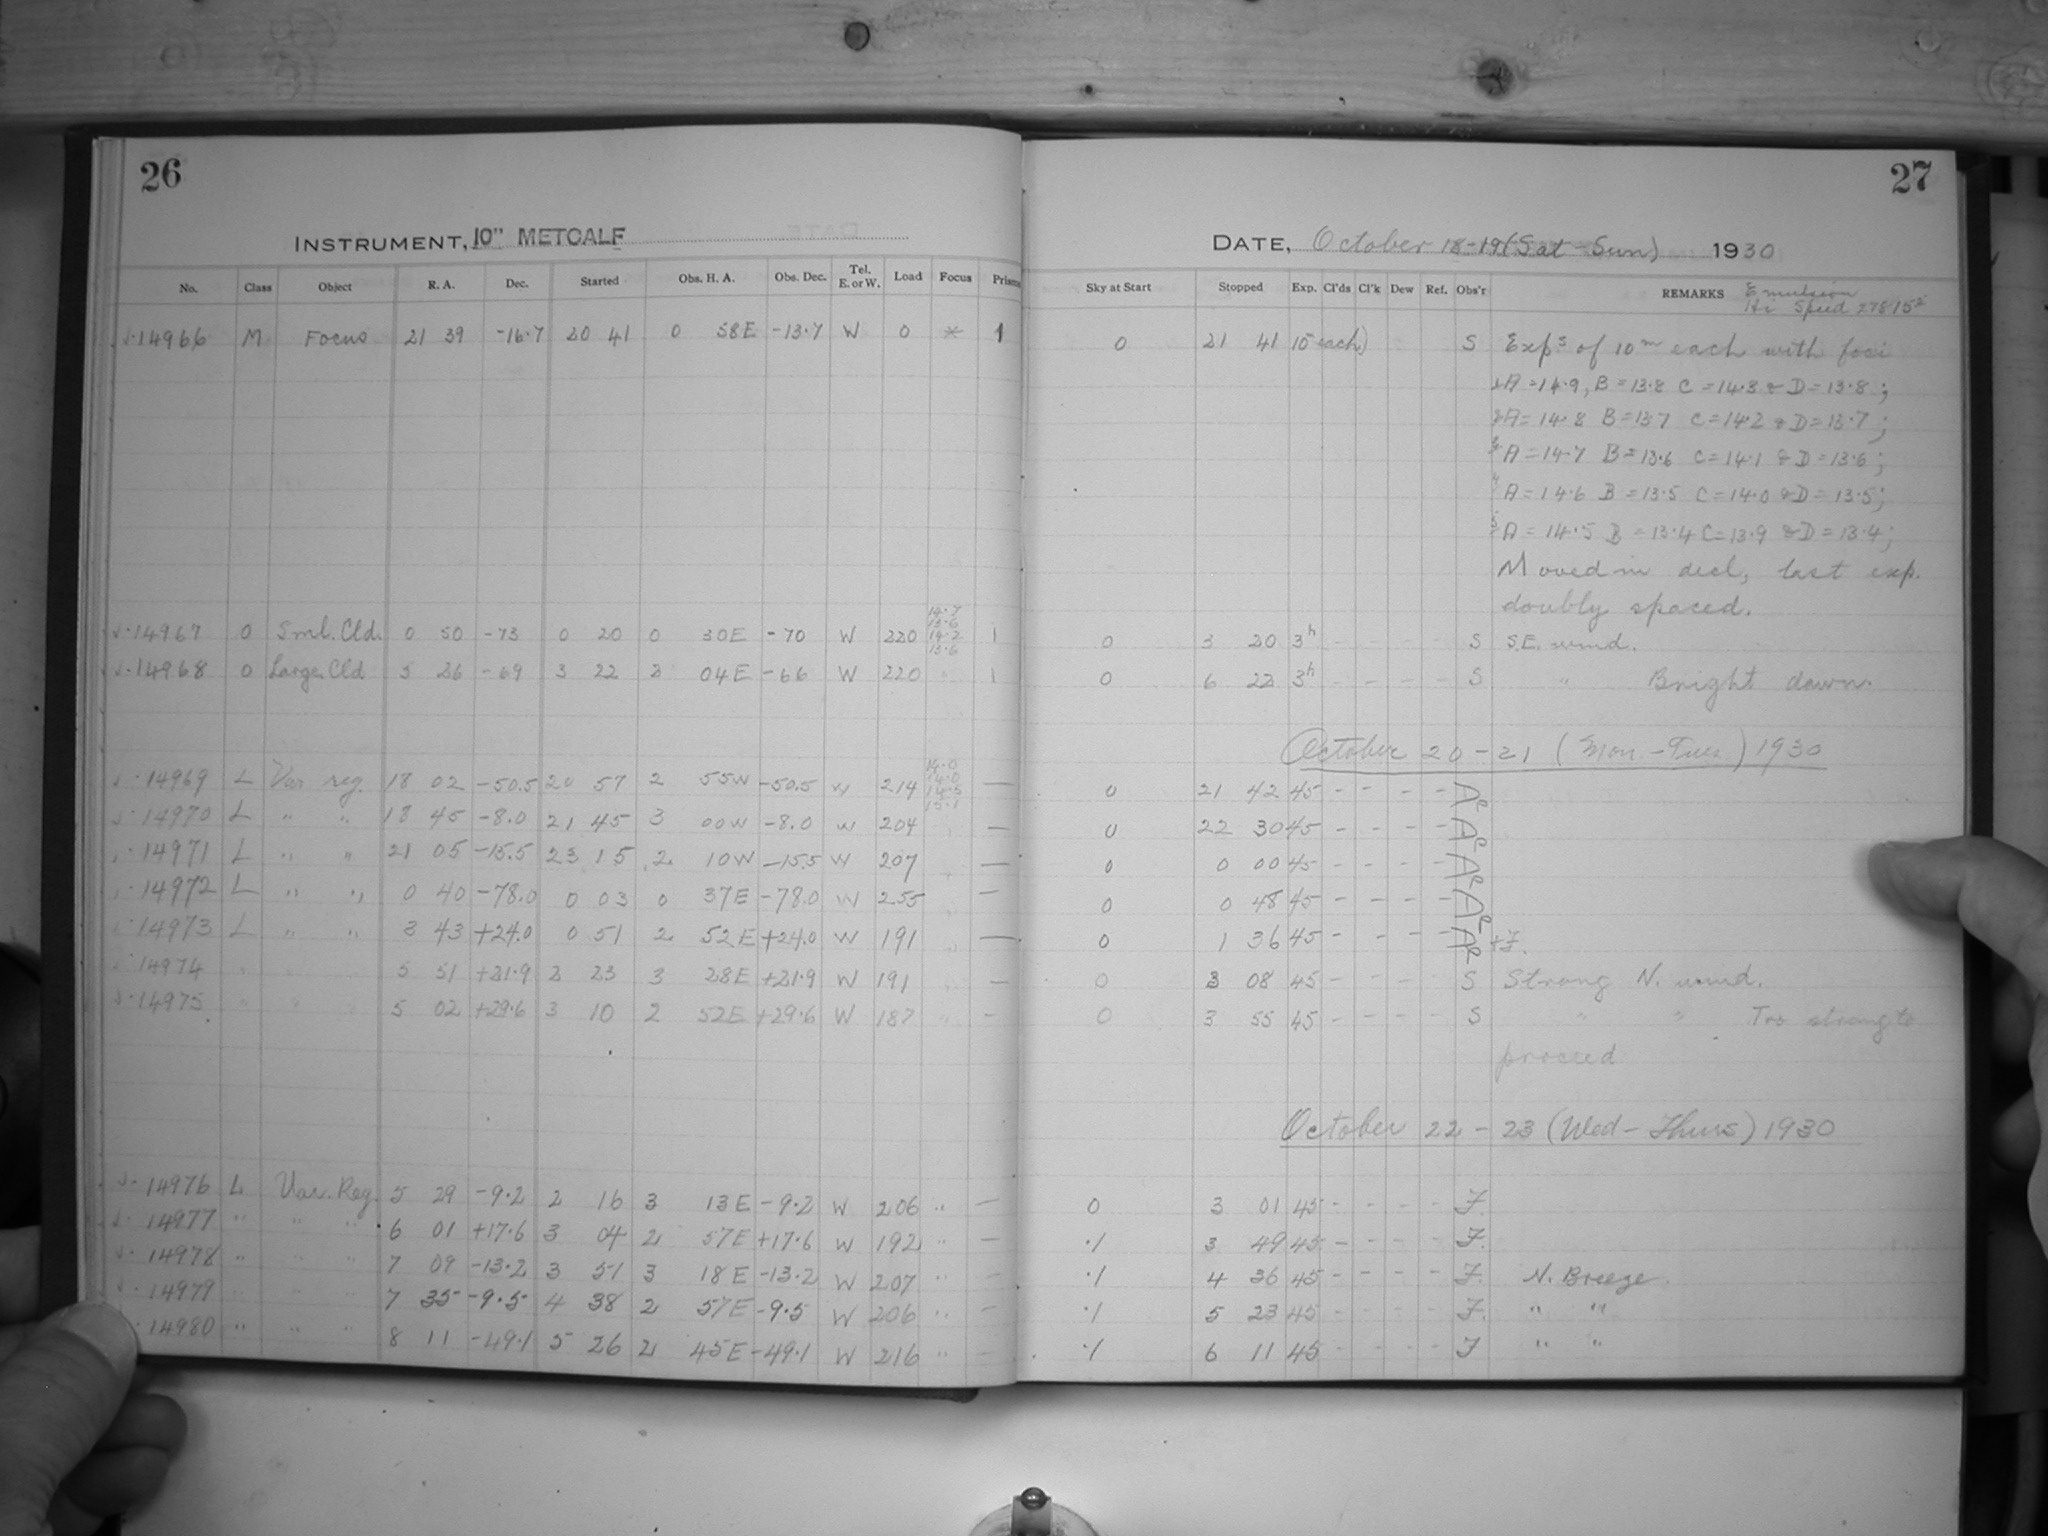 26
INSTRUMENT, 10" METCALF
No. Class Object R. A. Dec. Started Obs. H. A. Obs. Dec. Tel. E. or W. Load Focus Prism
14966 M Focus 21 39 -16.7 20 41 0 58E -13.7 W 0 * 1
14.7
13.6
14967 O Sml. Cld. 0 50 -73 0 20 0 30E -70 W 220 14.2 1
13.6
14968 O Large Cld 5 26 -69 3 22 2 04E -66 W 220 " 1
14.0
14969 L Var reg. 18 02 -50.5 20 57 2 55W -50.5 W 214 —
14970 L " " 18 45 -8.0 21 45 3 00W -8.0 W 204 —
14971 L " " 21 05 -15.5 23 15 2 10W -15.5 W 207 —
14972 L " " 0 40 -78.0 0 03 0 37E -78.0 W 255 —
14973 L " " 3 43 +24.0 0 51 2 52E +24.0 W 191 " —
14974 " 5 51 +21.9 2 23 3 28E +21.9 W 191 " —
14975 " " " 5 02 +29.6 3 10 2 52E +29.6 W 187 " -
14976 L Var. Reg. 5 29 -9.2 2 16 3 13E -9.2 W 206 " —
14977 " " " 6 01 +17.6 3 04 2 57E +17.6 W 192 " —
14978 " " " 7 09 -13.2 3 51 3 18E -13.2 W 207 " —
14979 " " " 7 35 -9.5 4 38 2 57E -9.5 W 206 " -
14980 " " " 8 11 -49.1 5 26 2 45E -49.1 W 216 " —
27
DATE, October 18-19 (Sat-Sun) 1930
Sky at Start Stopped Exp. Cl'ds Cl'k Dew Ref. Obs'r REMARKS Emulsion
Hi Speed
0 21 41 10 each) S Exps of 10m each with foci
1 A=14.9, B=13.8 C=14.3 & D=13.8;
2 A=14.8 B=13.7 C=14.2 & D=13.7;
3 A=14.7 B=13.6 C=14.1 & D=13.6;
4 A=14.6 B=13.5 C=14.0 & D=13.5;
5 A=14.5 B=13.4 C=13.9 & D=13.4;
Moved in decl, last exp.
doubly spaced.
0 3 20 3h - - - - S S.E. wind.
0 6 22 3h - - - - S " Bright dawn.
October 20-21 (Mon.-Tues) 1930
0 21 42 45 - - - -
0 22 30 45 - - - -
0 0 00 45 - - - -
0 0 48 45 - - - -
0 1 36 45 - - - - +F.
0 3 08 45 - - - S Strong N. wind.
0 3 55 45 - - - - S " " Too strong to
proceed
October 22-23 (Wed-Thurs) 1930
0 3 01 45 - - - - F.
.1 3 49 45 - - - - F.
.1 4 36 45 - - - - F. N. Breeze.
.1 5 23 45 - - - - F. " "
.1 6 11 45 - - - - F " "